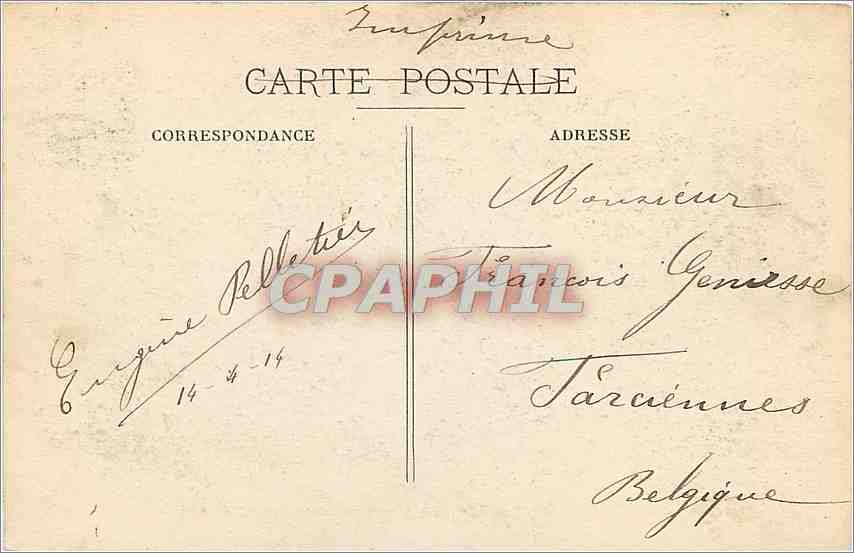 Imprimé
CARTE POSTALE
CORRESPONDANCE
ADRESSE
Eugène Pelletier
14-4-14
Monsieur
François Genisse
Tarciennes
Belgique
CPAPHIL